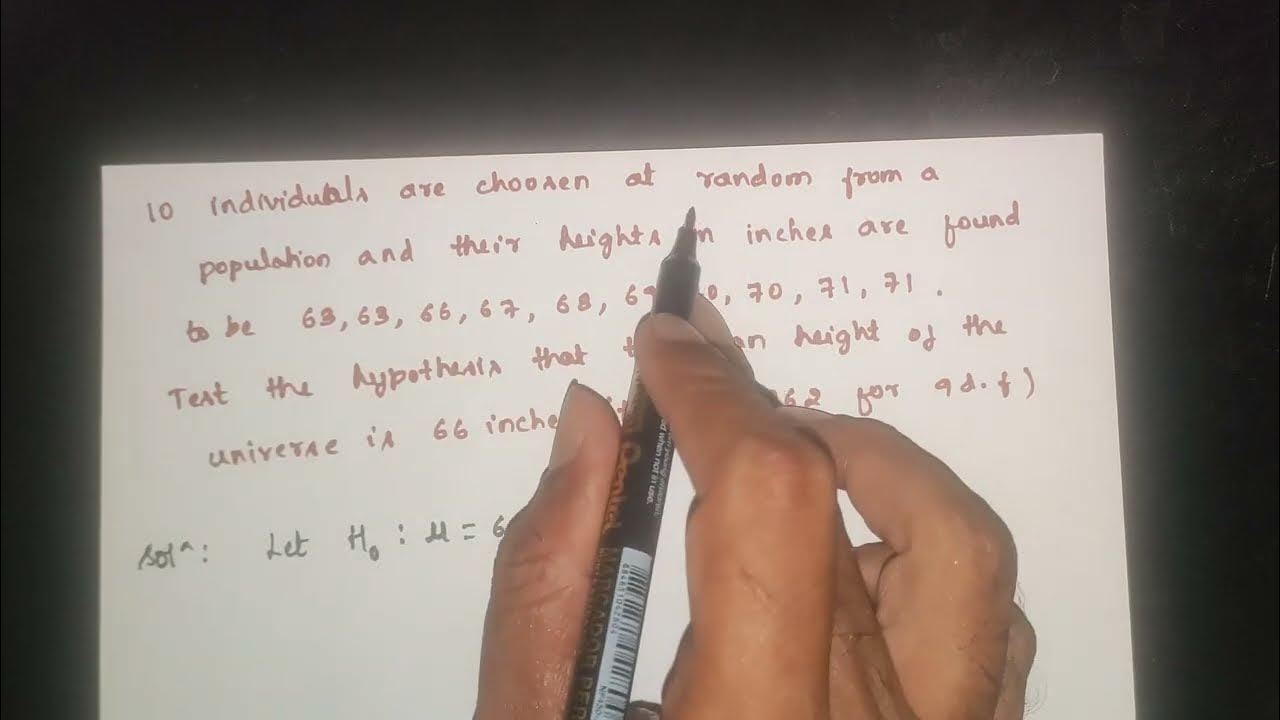 10 individuals are choosen at random from a
population and their heights in inches are found
to be 63, 63, 66, 67, 68, 69 0, 70, 71, 71.
Test the hypothesis that t an height of the
universe is 66 inche 62 for 9 d.f)
soln: Let H0 : μ = 6
when not in use.
MARCADOR PER